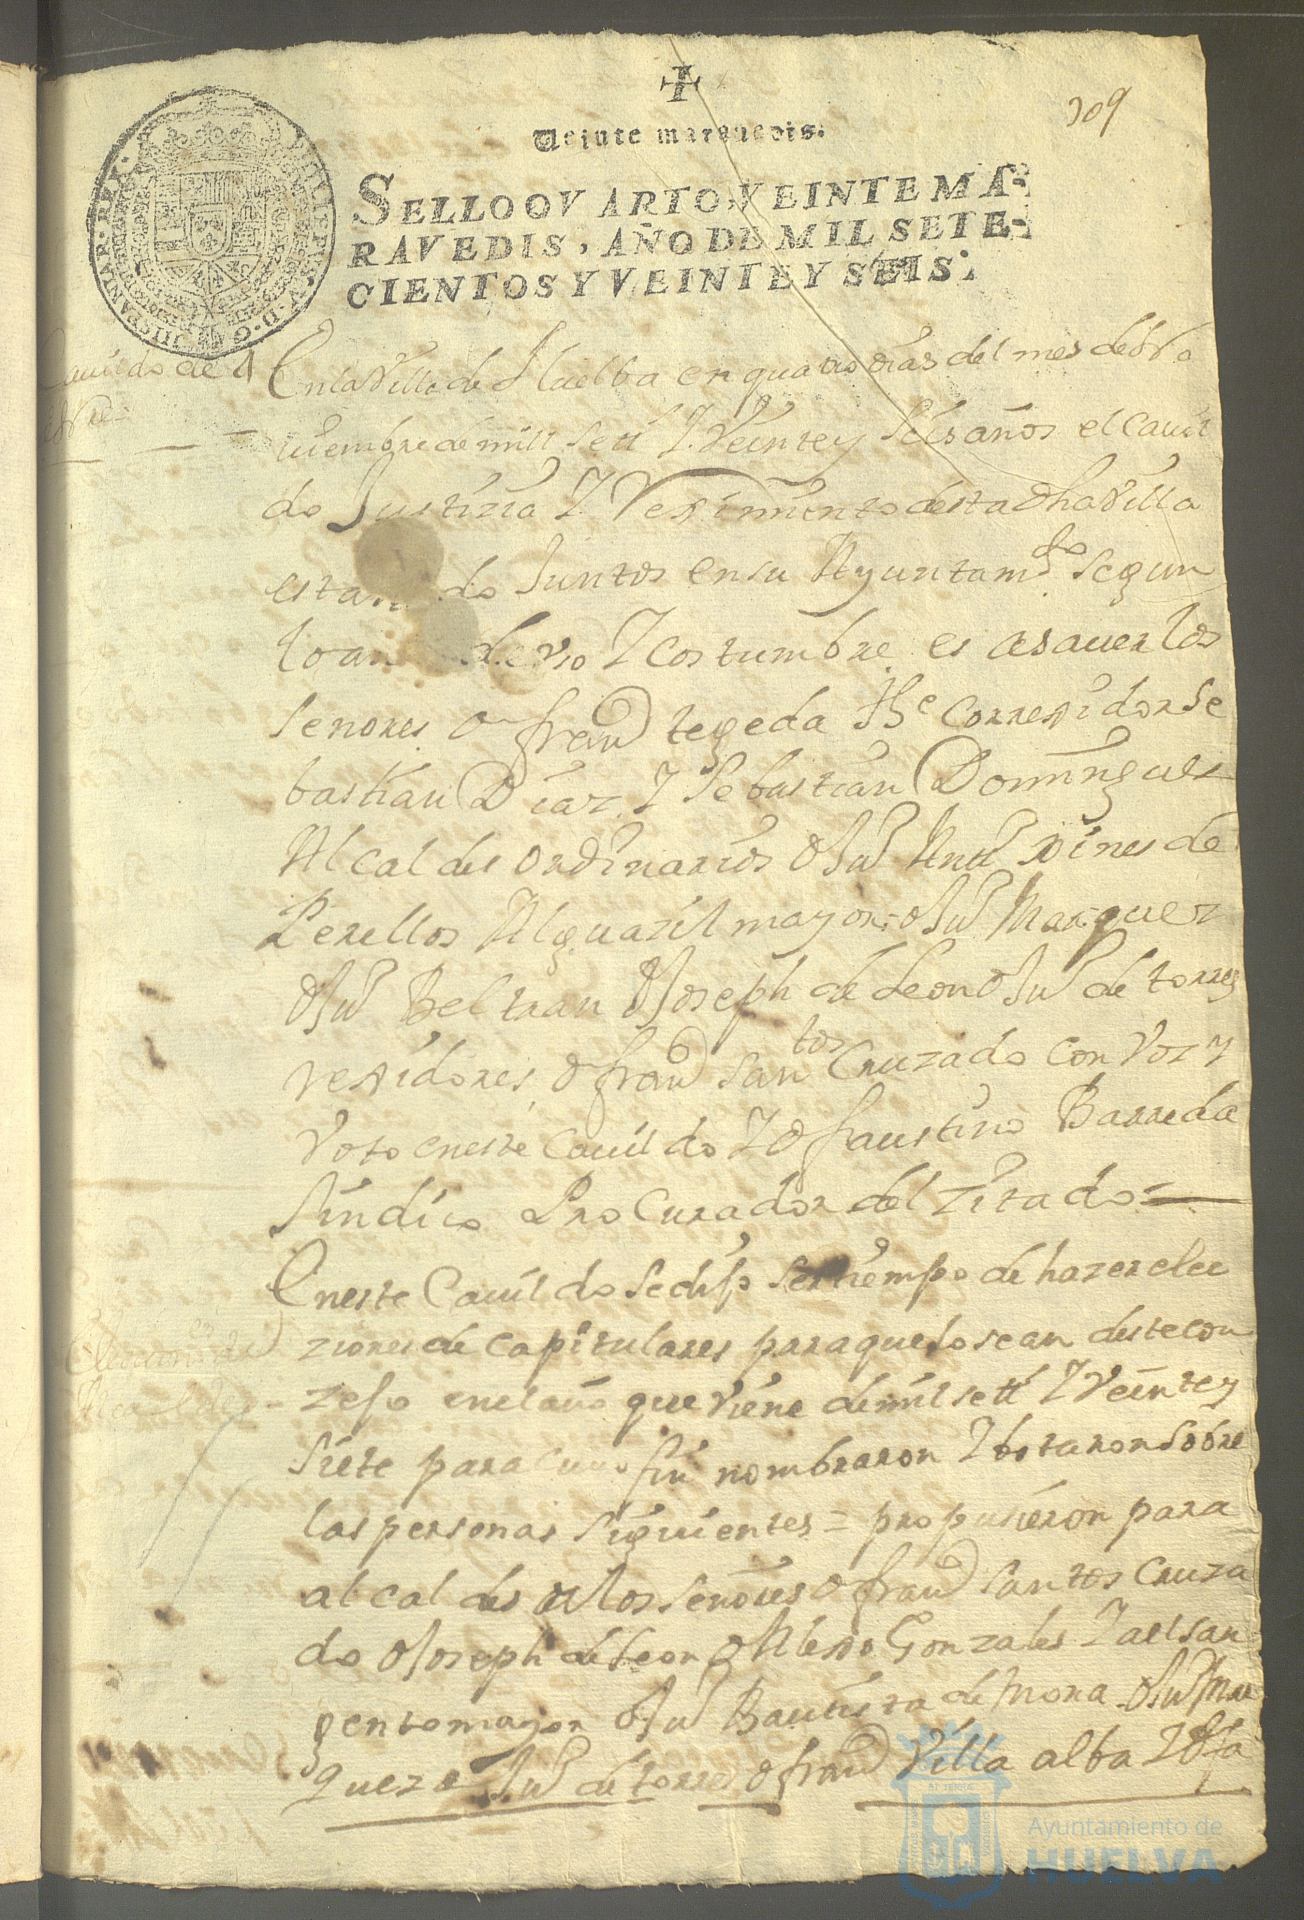 309
Veinte maravedis.
SELLO QVARTO, VEINTE MA-
RAVEDIS, AÑO DE MIL SETE-
CIENTOS Y VEINTE Y SEIS.
PHILIPPUS V D G HISPANIAR REX
Cauildo de 4
En la Villa de Huelba en quatro dias del mes de No
uiembre de mill sett.s Y Veinte y Seis años el Cauil
do Justizia Y Reximiento desta dha Villa
estando Juntos en su Ayuntamto segun
lo an de vso Y costumbre es asauer los
Señores Dn franco tegeda The Correxidor Se
bastian Diaz Y Sebastian Domingues
Alcaldes ordinarios D Jun Antt Xines de
Perellos Alguazil mayor: D Jun Marquez
D Jun Beltran D Joseph de Leon D Jun de torres
rexidores, D franco Santos Cruzado con Voz y
Voto en este Cauildo Y D faustino Barreda
Sindico Procurador del Zitado =
En este Cauildo se dijo ser tiempo de hazer elec
ziones de capitulares para que lo sean deste con
zejo en el año que Viene de mil sett.s Y Veinte y
Siete para cuio fin nombraron Y botaron Sobre
las personas siguientes = propusieron para
alcaldes a los señores D franco Santos Cruza
do D Joseph de Leon D Alexo Gonzales Y al Sar
gento mayor D Jun Bautista de Mora D Jun Mar
quez D Jun de torres D franco Villa alba Y D
Eleccion de
Alcaldes
Ayuntamiento de
HUELVA